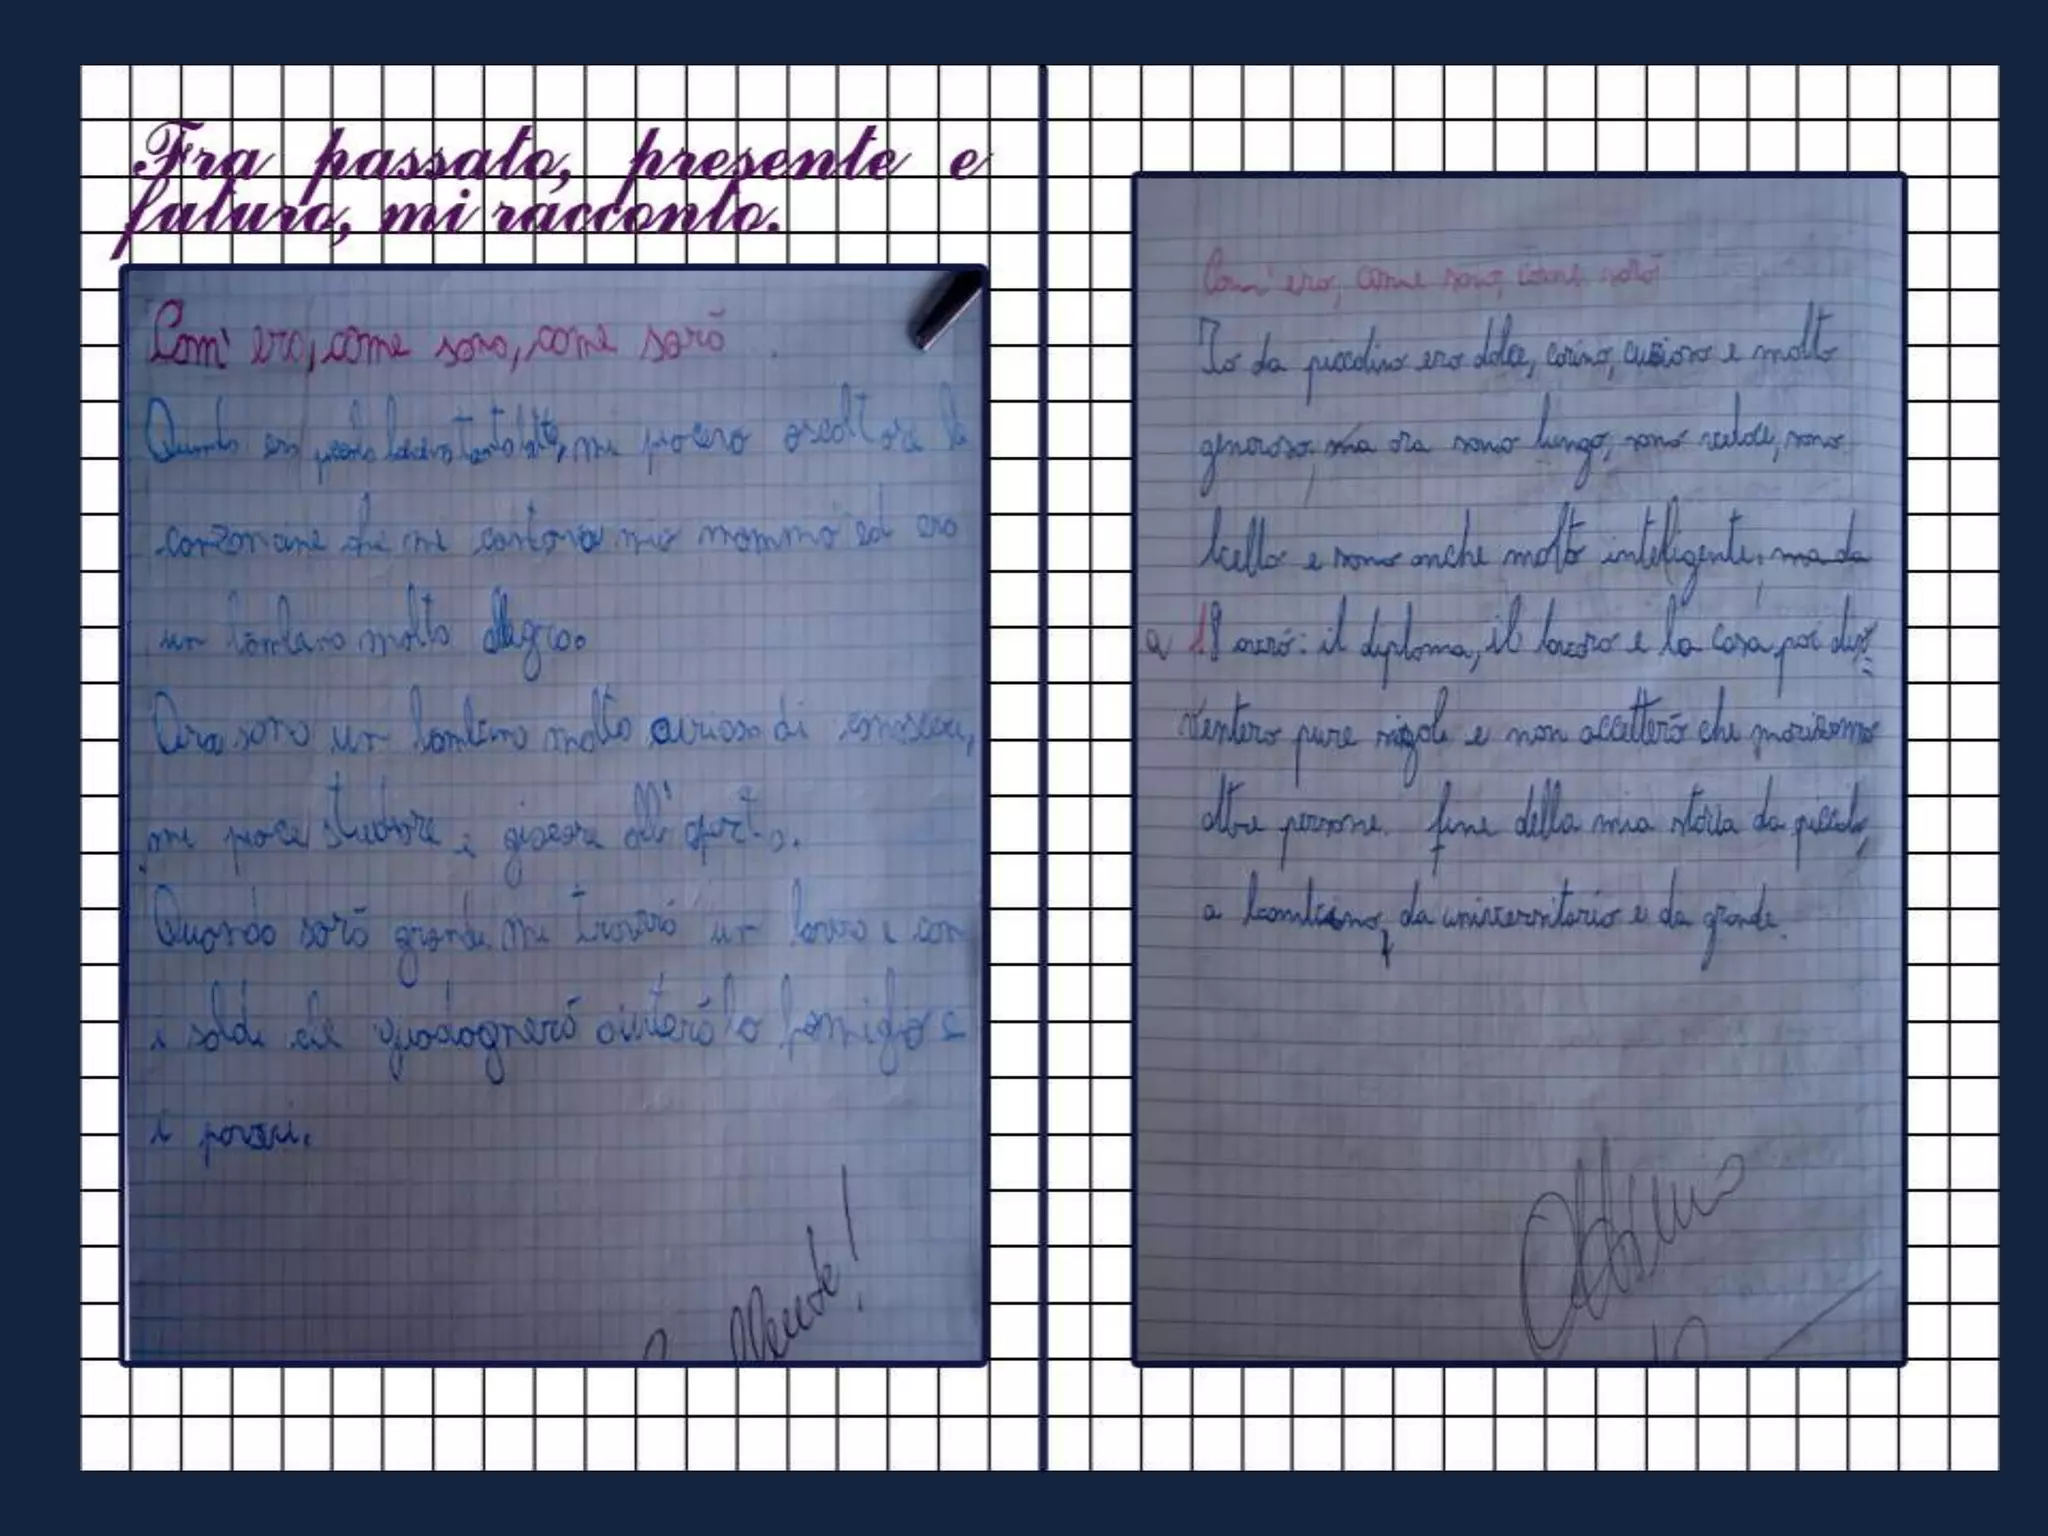 Fra passato, presente e
futuro, mi racconto.
Com' ero, come sono, come sarò
Quando ero piccolo bevevo tanto latte, mi piaceva ascoltare le
canzoncine che mi cantava mia mamma ed ero
un bambino molto allegro.
Ora sono un bambino molto curioso di conoscere,
mi piace studiare e giocare all'
Quando sarò grande mi troverò un lavoro e con
i soldi che guadagnerò aiuterò la famiglia e
i poveri.
Com' ero, come sono, come sarò
Io da piccolino ero dolce, carino, curioso e molto
generoso, ma ora sono lungo, sono veloce, sono
bello e sono anche molto intelligente. ma da
a 18 avrò: il diploma, il lavoro e la casa, poi
ventero pure e non accetterò che
altre persone. fine della mia storia da piccolo,
a bambino, da universitario e da grande.
Ottimo
10